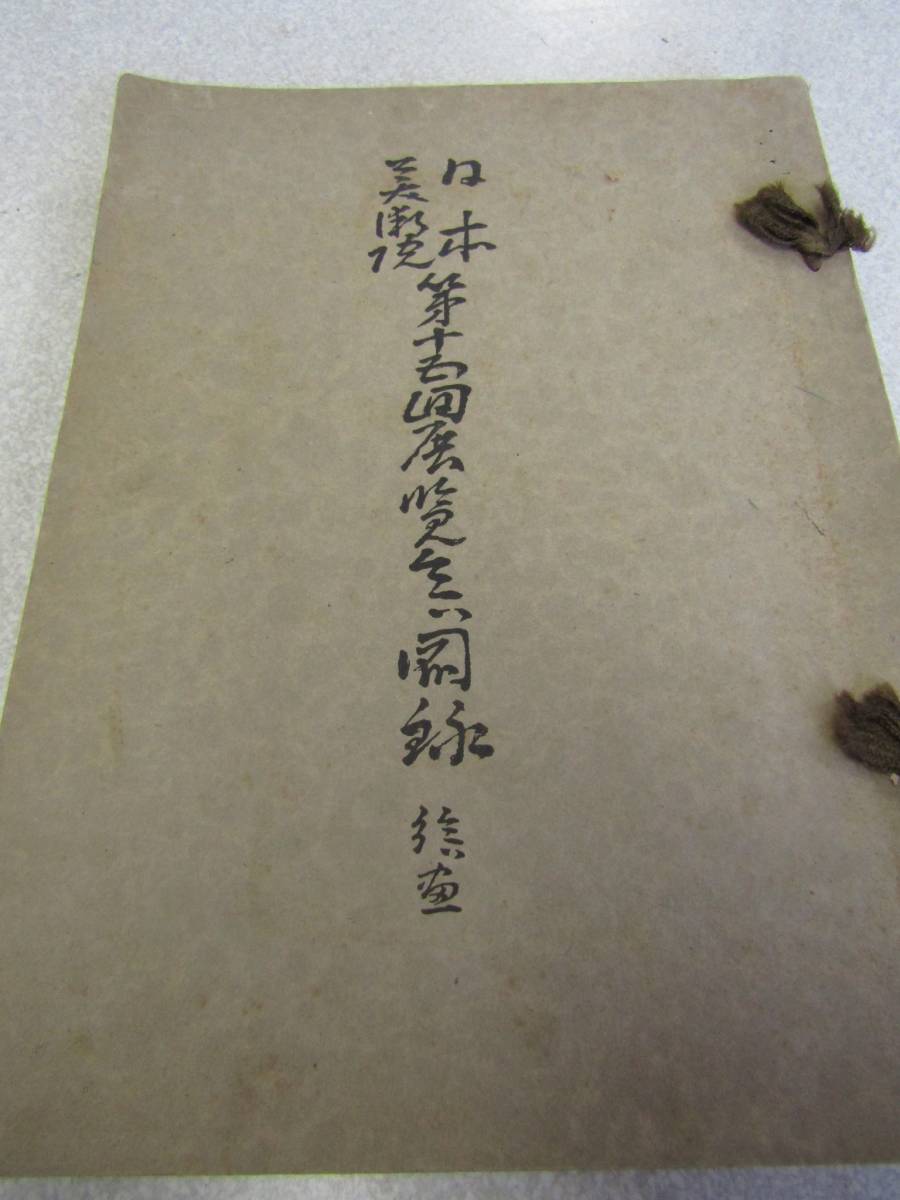 日本
美術院
第十五回展覧会図録
絵画